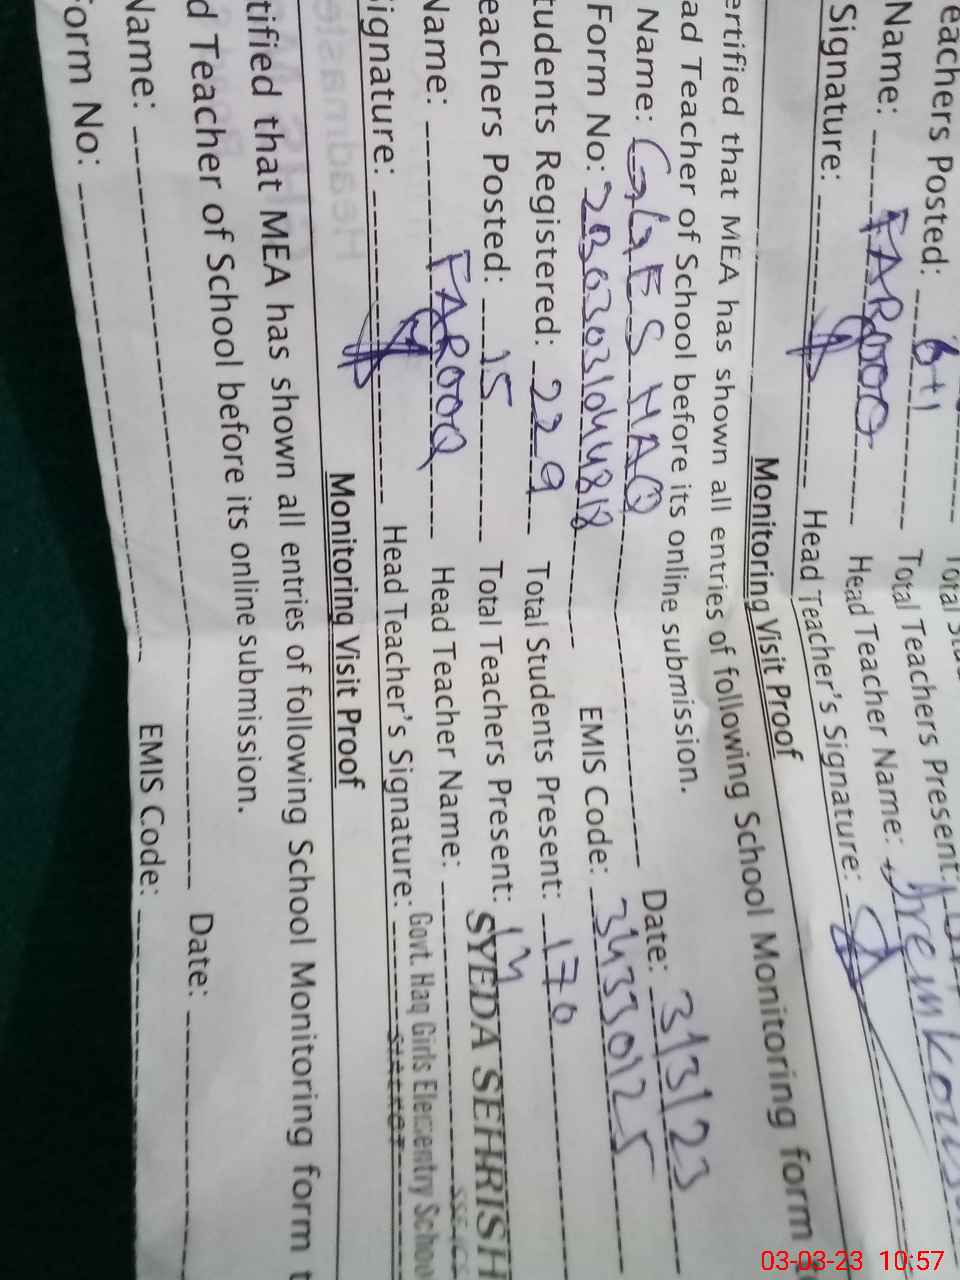 eachers Posted: 6+1 Total Teachers Present:
Name: FAROOQ Head Teacher Name:
Signature: Head Teacher's Signature:
Monitoring Visit Proof
ertified that MEA has shown all entries of following School Monitoring form
ad Teacher of School before its online submission.
Name: GGES HAQ Date: 3/3/23
Form No: EMIS Code: 34330125
tudents Registered: 229 Total Students Present: 170
eachers Posted: 15 Total Teachers Present: 14
Name: FAROOQ Head Teacher Name: SYEDA SEHRISH
ignature: Head Teacher's Signature: Govt. Haq Girls Elementry Schoo
Monitoring Visit Proof
tified that MEA has shown all entries of following School Monitoring form t
d Teacher of School before its online submission.
Name: Date:
Form No: EMIS Code:
03-03-23 10:57